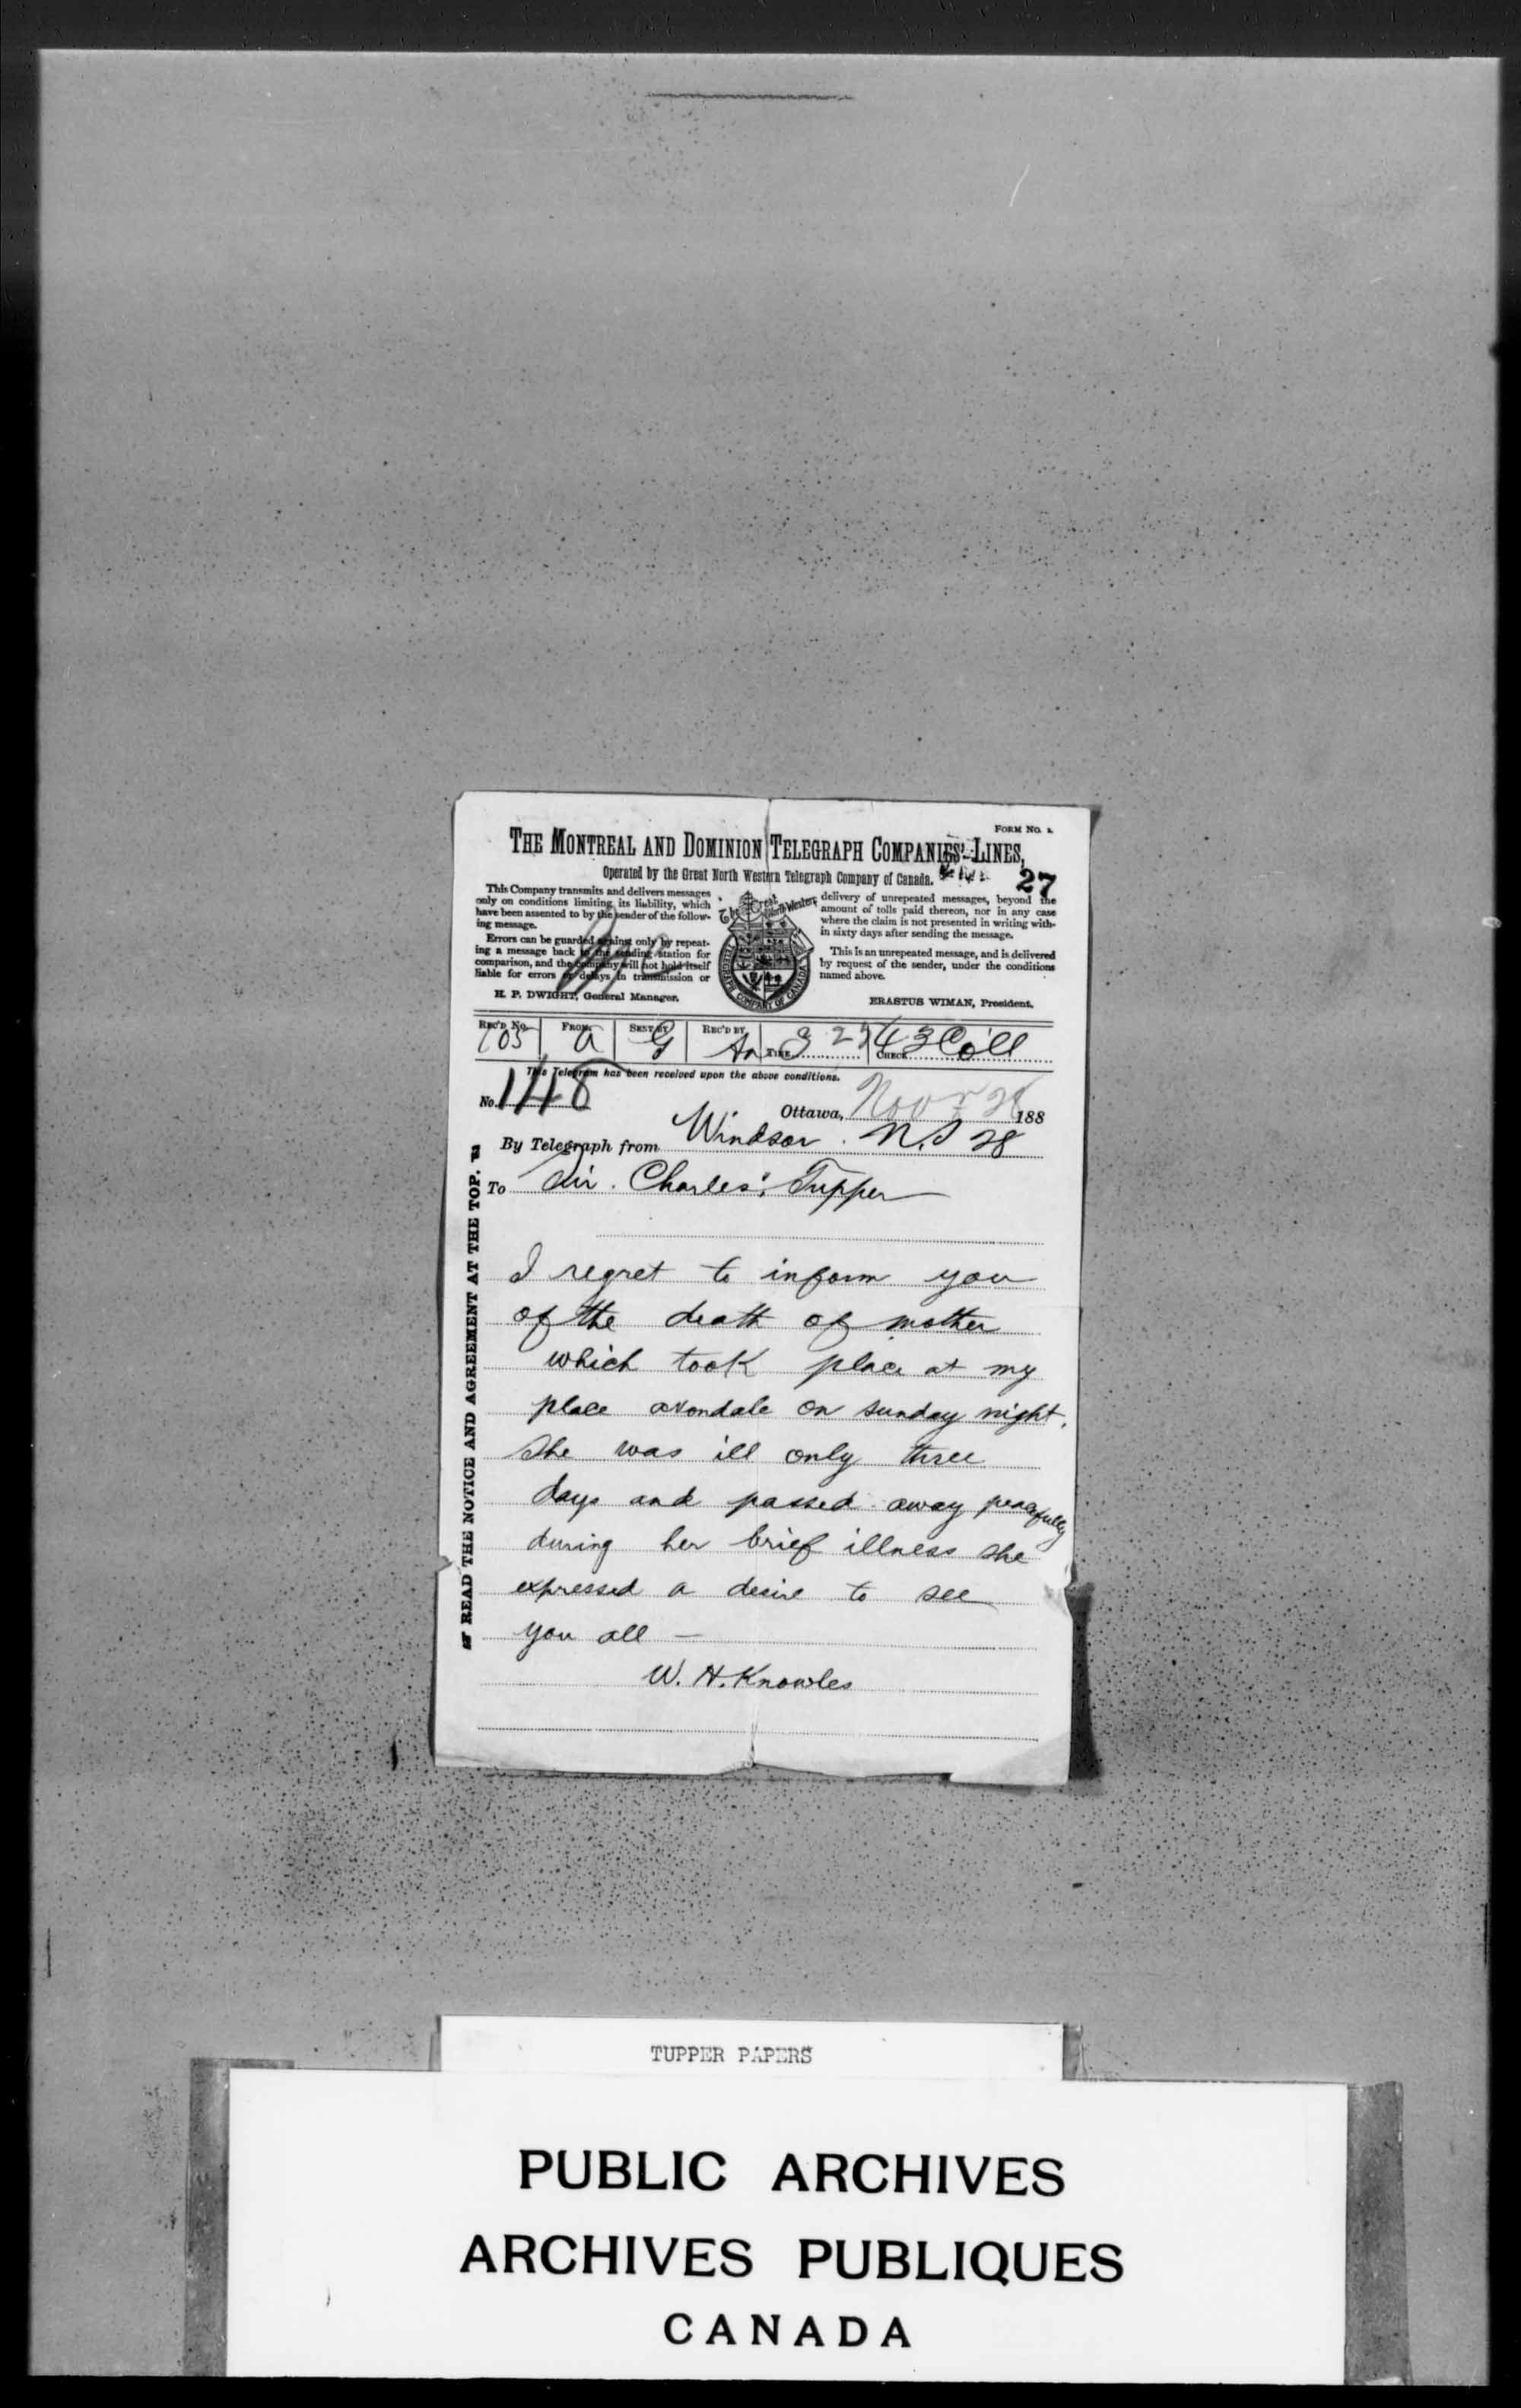 FORM NO. 2.
THE MONTREAL AND DOMINION TELEGRAPH COMPANIES' LINES,
Operated by the Great North Western Telegraph Company of Canada.
27
This Company transmits and delivers messages
only on conditions limiting its liability, which
have been assented to by the sender of the follow-
ing message.
Errors can be guarded against only by repeat-
ing a message back to the sending station for
comparison, and the company will not hold itself
liable for errors or delays in transmission or
H. P. DWIGHT, General Manager.
The Great North Western
TELEGRAPH COMPANY OF CANADA
delivery of unrepeated messages, beyond the
amount of tolls paid thereon, nor in any case
where the claim is not presented in writing with-
in sixty days after sending the message.
This is an unrepeated message, and is delivered
by request of the sender, under the conditions
named above.
ERASTUS WIMAN, President.
REC'D No. 105 FROM a SENT BY G REC'D BY TIME CHECK 43 Coll
This Telegram has been received upon the above conditions.
No. 148
Ottawa, Nov 28 188
By Telegraph from Windsor . N.S 28
To Sir . Charles Tupper
I regret to inform you
of the death of mother
which took place at my
place avondale on sunday night.
She was ill only three
days and passed away peacefully
during her brief illness she
expressed a desire to see
you all —
W. H. Knowles
READ THE NOTICE AND AGREEMENT AT THE TOP.
TUPPER PAPERS
PUBLIC ARCHIVES
ARCHIVES PUBLIQUES
CANADA